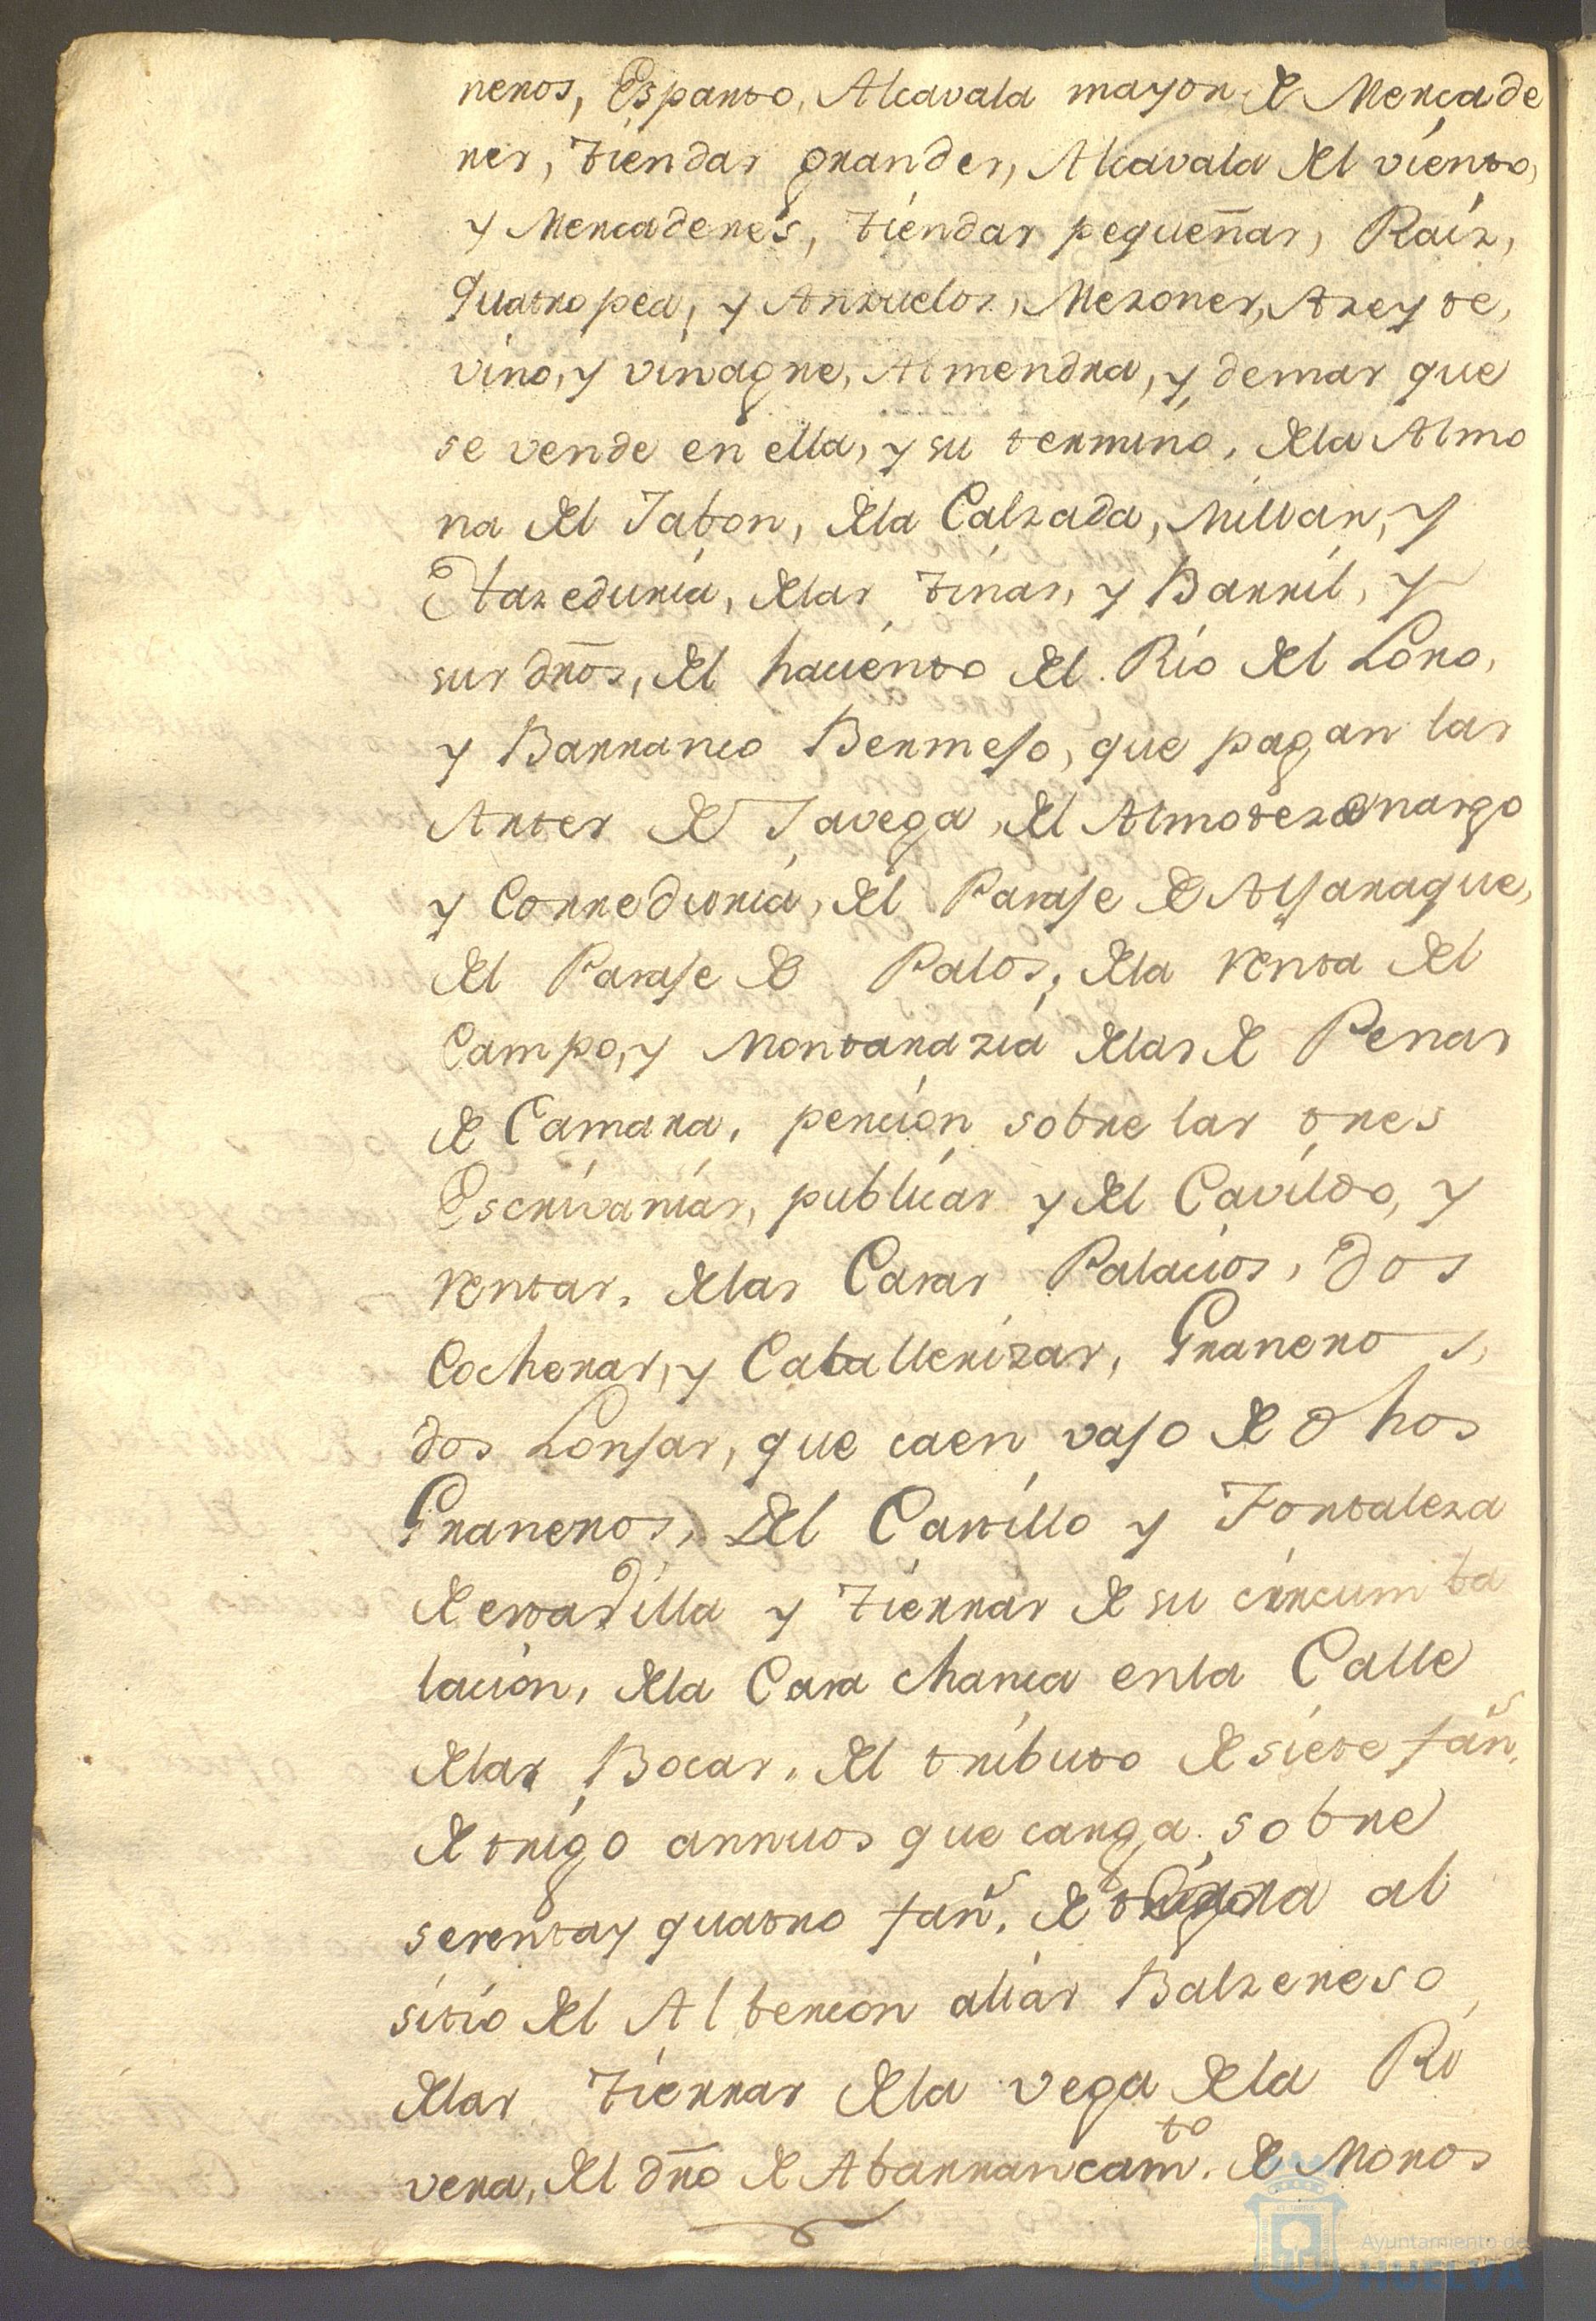 neros, Esparto, Alcavala mayor de Mercade
res, tiendas grandes, Alcavala del viento,
y Mercaderes, tiendas pequeñas, Raiz,
Quatropea, y Anzuelos, Mezones, Azeyte,
vino, y vinagre, Almendra, y demas que
se vende en ella, y su termino, dela Almo
na del Jabon, dela Calzada, Millar, y
Hazeduria, delas tinas, y Barril, y
sus dr̄os, del haciento del Rio del Loro,
y Barranco Bermejo, que pagan las
Artes de Javega, del Almotezenazgo
y Correduria, del Pasaje de Aljaraque,
del Pasaje de Palos, dela renta del
Campo, y Montarazia delas de Penas
de Camara, pencion sobre las tres
Escrivanias, publicas y del Cavildo, y
rentas, delas Casas Palacios, dos
Cocheras, y Caballerizas, Graneros,
dos Lonjas, que caen vajo de dhos
Graneros, del Castillo y Fortaleza
de estadilla y tierras de su circumba
lacion, dela Casa chanca enla Calle
delas Bocas, del tributo de siete fan.s
de trigo annuos que carga sobre
sesenta y quatro fan.s de tierra al
sitio del Albercon alias Balzereso,
delas tierras dela vega dela Ri
vera, del dr̄o de Abarrancam.to de Moros
Ayuntamiento de
HUELVA